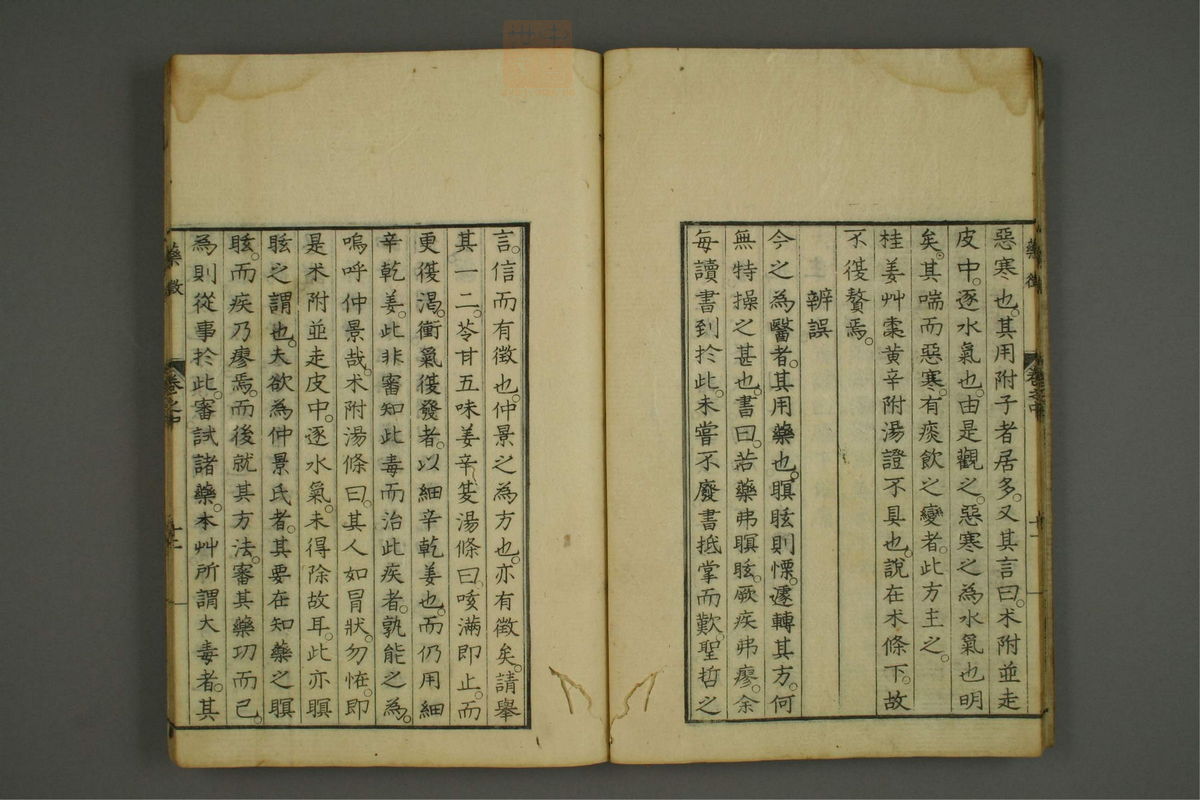 惡寒也。其用附子者居多。又其言曰。朮附並走
皮中。逐水氣也。由是觀之。惡寒之為水氣也明
矣。其喘而惡寒。有痰飲之變者。此方主之。
桂姜艸棗黄辛附湯證不具也。說在朮條下。故
不復贅焉。
辨誤
今之為醫者。其用藥也。瞑眩則慄。遽轉其方。何
無特操之甚也。書曰。若藥弗瞑眩。厥疾弗瘳。余
每讀書到於此。未嘗不廢書抵掌而歎。聖哲之
藥徵
卷之中
言。信而有徵也。仲景之為方也。亦有徵矣。請舉
其一二。苓甘五味姜辛夏湯條曰。咳滿即止。而
更復渴。衝氣復發者。以細辛乾姜也。而仍用細
辛乾姜。此非審知此毒而治此疾者。孰能之為。
嗚呼仲景哉。朮附湯條曰。其人如冒狀。勿怪。即
是朮附並走皮中。逐水氣。未得除故耳。此亦瞑
眩之謂也。夫欲為仲景氏者。其要在知藥之瞑
眩。而疾乃瘳焉。而後就其方法。審其藥功而已。
為則從事於此。審試諸藥。本艸所謂大毒者。其
藥徵
卷之中